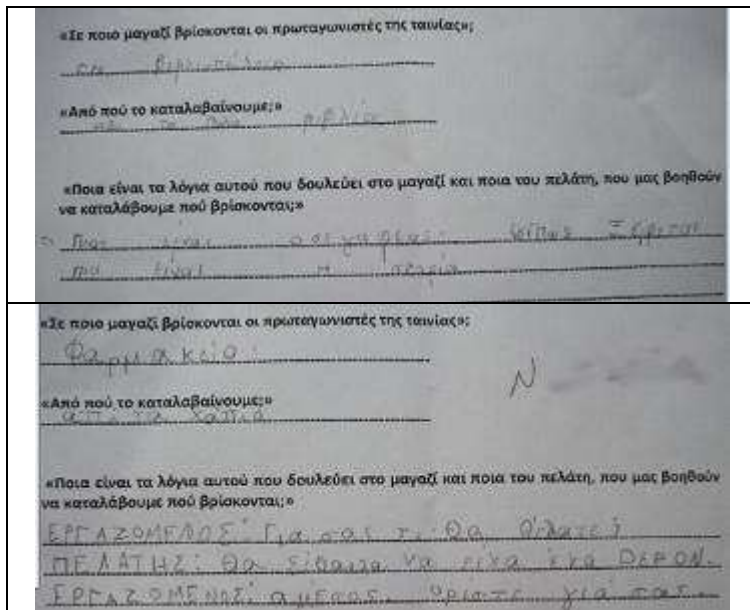 «Σε ποιο μαγαζί βρίσκονται οι πρωταγωνιστές της ταινίας»;
στο βιβλιοπωλείο
«Από πού το καταλαβαίνουμε;»
βιβλία
«Ποια είναι τα λόγια αυτού που δουλεύει στο μαγαζί και ποια του πελάτη, που μας βοηθούν
να καταλάβουμε πού βρίσκονται;»
είναι ο μήπως ξέρεται
που είναι η
«Σε ποιο μαγαζί βρίσκονται οι πρωταγωνιστές της ταινίας»;
Φαρμακείο.
Ν
«Από πού το καταλαβαίνουμε;»
από τα χάπια
«Ποια είναι τα λόγια αυτού που δουλεύει στο μαγαζί και ποια του πελάτη, που μας βοηθούν
να καταλάβουμε πού βρίσκονται;»
ΕΡΓΑΖΟΜΕΝΟΣ: Γεια σας τι θα θέλατε;
ΠΕΛΑΤΗΣ: Θα να είχα ένα DEPON.
ΕΡΓΑΖΟΜΕΝΟΣ: αμέσος. ορίστε γιά σας.